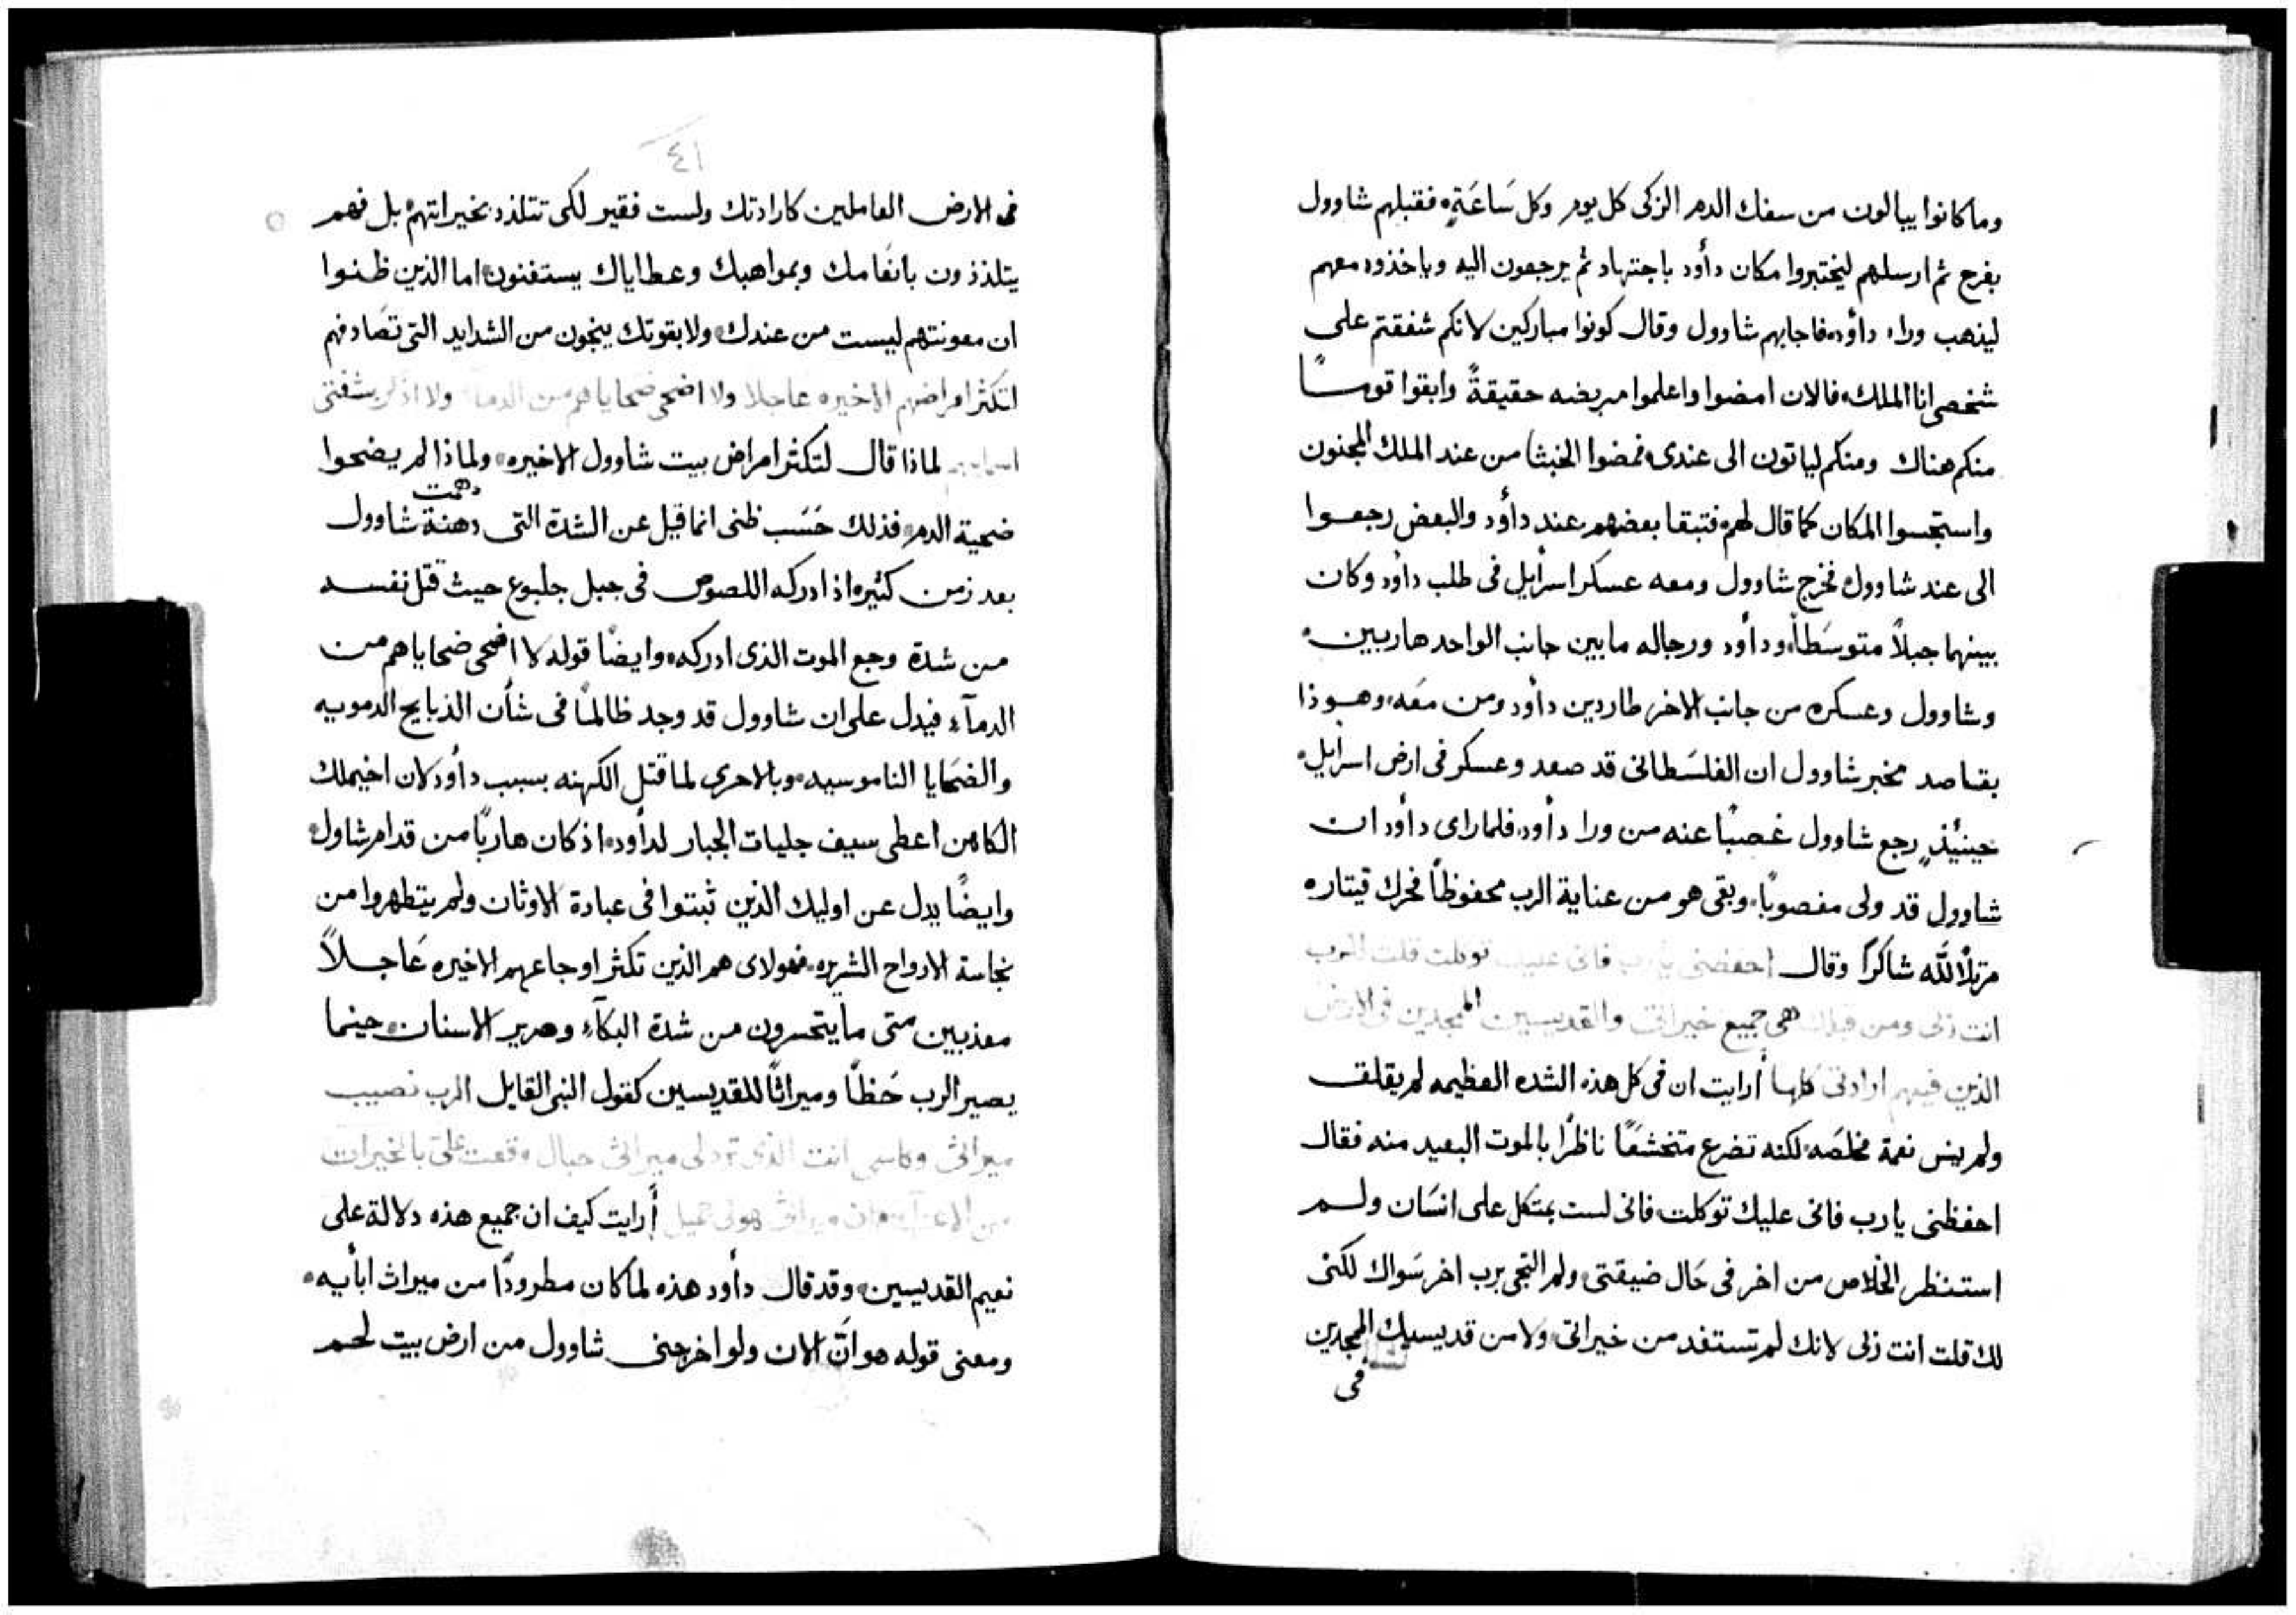 وما كانوا يبالون من سفك الدم الزكى كل يوم وكل سَاعَةٍ فقبلهم شاوول
بفرح ثم ارسلهم ليختبروا مكان دأود باجتهاد ثم يرجعون اليه وياخذوه معهم
ليذهب وراء دأود فاجابهم شاوول وقال كونوا مباركين لانكم شفقتم على
شخصى انا الملك فالان امضوا واعلموا مربضه حقيقةً وابقوا قومـــاً
منكم هناك ومنكم لياتون الى عندى فمضوا الخبثا من عند الملك المجنون
واستجسوا المكان كما قال لهم فتبقا بعضهم عند دأود والبعض رجعوا
الى عند شاوول فخرج شاوول ومعه عسكر اسرأيل فى طلب دأود وكان
بينهما جبلاً متوسَطاً ودأود ورجاله مابين جانب الواحد هاربين
وشاوول وعسكره من جانب الاخر طاردين دأود ومن معَه وهوذا
بقاصد مخبر شاوول ان الفلسَطانى قد صعد وعسكر فى ارض اسرأيل
حينيُذٍ رجع شاوول غصبًا عنه من ورا دأود فلما راى دأود ان
شاوول قد ولى مغصوبًا وبقى هو من عناية الرب محفوظاً فحرك قيتاره
مرتلاً لله شاكراً وقال احفضنى يا رب فانى عليك توكلت قلت للرب
انت ربى ومن قبلك هى جميع خيراتى والقديسين الممجدين فى الارض
الذين فيهم ارادتى كلها أرايت ان فى كل هذه الشده العظيمه لم يقلق
ولم ينس نعمة مخلصَه لكنه تضرع متخشعًا ناظرًا بالموت البعيد منه فقال
احفظنى يا رب فانى عليك توكلت فانى لست بمتكل على انسَان ولم
استنظر الخلاص من اخر فى حَال ضيقتى ولم التجى برب اخر سَواك لكنى
لك قلت انت ربى لانك لم تستفد من خيراتى ولا من قديسيك الممجدين
فى
٤١
فى الارض العاملين كارادتك ولست فقير لكى تتلذذ بخيراتهم بل فهم
يتلذذون بانعَامك وبمواهبك وعطاياك يستغنون اما الذين ظنوا
ان معونتهم ليست من عندك ولا بقوتك ينجون من الشدايد التى تصَادفهم
لتكثر امراضهم الاخيره عاجلا ولا اضحى ضحاياهم من الدما ولا اذكر بشفتى
اسماءهم لماذا قال لتكثر امراض بيت شاوول الاخيره ولماذا لم يضحوا
ضحية الدم فذلك حَسَب ظنى انما قيل عن الشدة التى دهنة شاوول
دهمت
بعد زمن كثير اذ ادركه اللصوص فى جبل جلبوع حيث قتل نفسه
من شدة وجع الموت الذى ادركه وايضًا قوله لا اضحى ضحاياهم من
الدمآء فيدل على ان شاوول قد وجد ظالمًا فى شأن الذبايح الدمويه
والضحَايا الناموسيه وبالاحرى لما قتل الكهنه بسبب دأود لان اخيملك
الكاهن اعطى سيف جليات الجبار لدأود اذ كان هاربًا من قدام شاول
وايضًا يدل عن اوليك الذين ثبتوا فى عبادة الاوثان ولم يتطهروا من
نجاسة الارواح الشريره فهولاى هم الذين تكثر اوجاعهم الاخيره عَاجلاً
معذبين متى ما يتحسرون من شدة البكآء وصرير الاسنان حينما
يصير الرب حَظاً وميراثاً للقديسين كقول النبى القايل الرب نصيب
ميراثى وكاسى انت الذى ترد لى ميراثى حبال وقعت على بالخيرات
ميراثى هو لى جميل أرايت كيف ان جميع هذه دلالة على
نعيم القديسين وقد قال دأود هذه لما كان مطرودًا من ميراث ابأيه
ومعنى قوله هو انَّ الان ولو اخرجنى شاوول من ارض بيت لحم